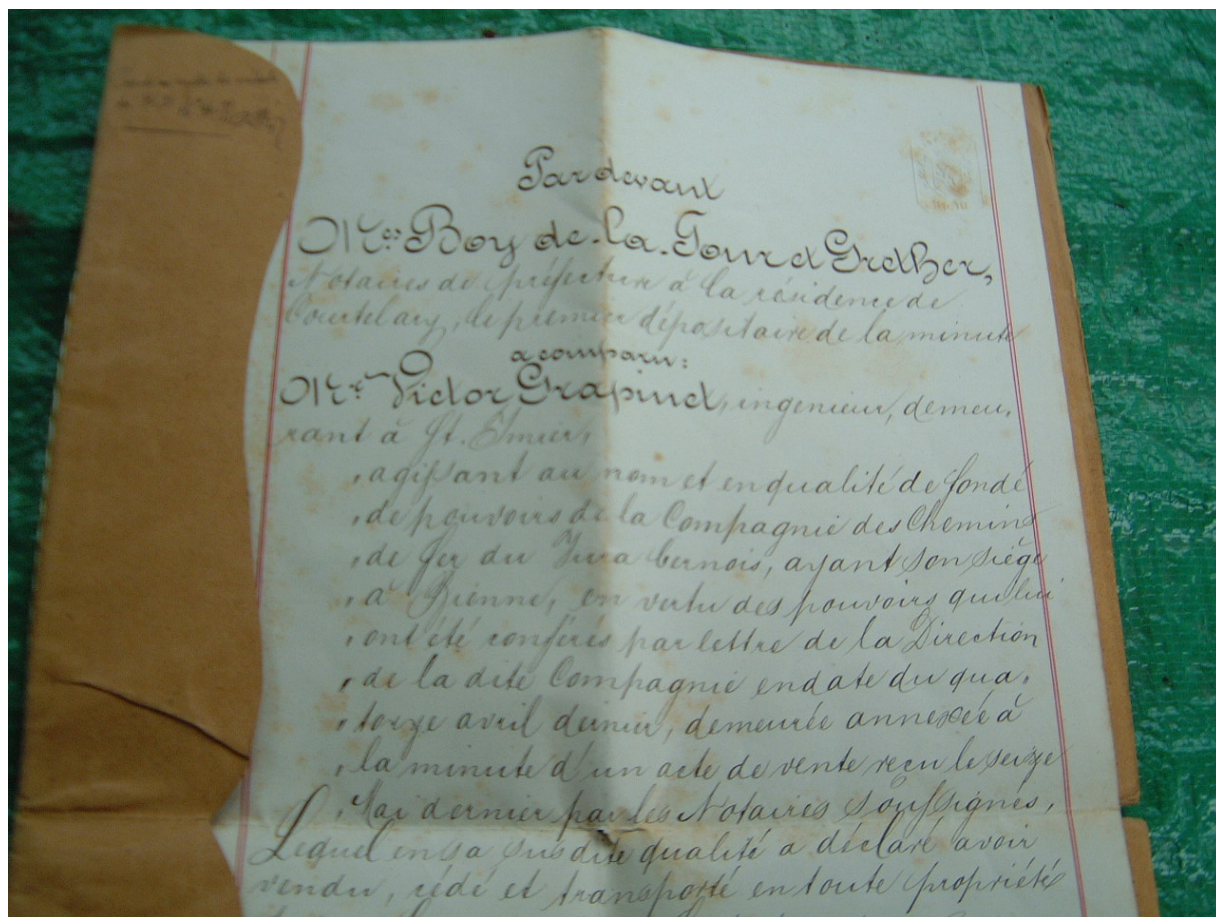 Pardevant
Mes Boy de-la-Tour et Grether,
Notaires de préfecture à la résidence de
Courtelary, le premier dépositaire de la minute
a comparu:
Mr. Victor Grapinet, ingenieur, demeu,
rant à St. Imier,
, agissant au nom et en qualité de fondé
, de pouvoirs de la Compagnie des Chemins
, de fer du Jura bernois, ayant son siège
, à Bienne, en vertu des pouvoirs qui lui
, ont été conférés par lettre de la Direction
, de la dite Compagnie en date du qua,
, torze avril dernier, demeurée annexée à
, la minute d'un acte de vente reçu le seize
, Mai dernier par les Notaires soussignés,
Lequel en sa sus dite qualité a déclaré avoir
vendu, cédé et transporté en toute propriété